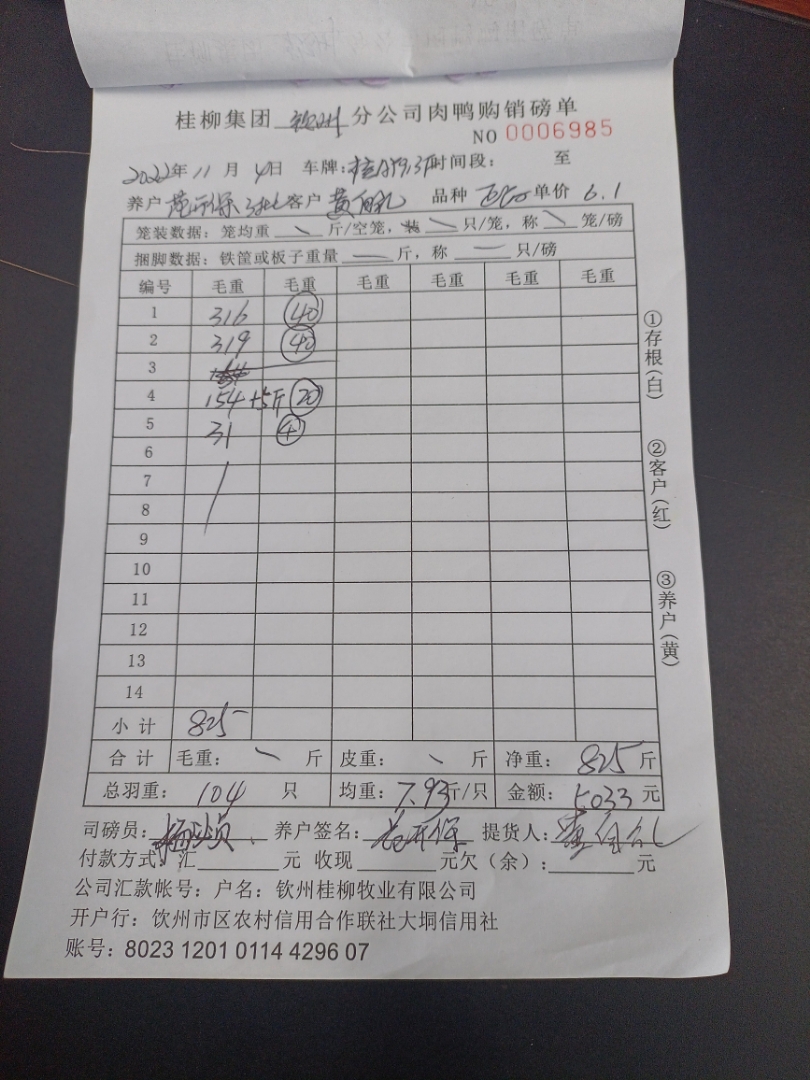 桂柳集团 钦州 分公司肉鸭购销磅单
NO 0006985
2022年 11 月 4日 车牌: 时间段: 至
养户 客户 黄 品种 单价 6.1
笼装数据: 笼均重 斤/空笼, 装 只/笼, 称 笼/磅
捆脚数据: 铁筐或板子重量 斤, 称 只/磅
编号 毛重 毛重 毛重 毛重 毛重 毛重
1 316 40
2 319 40
3
4 154+5斤 20
5 31 4
6
7
8
9
10
11
12
13
14
小计 825
合计 毛重: 斤 皮重: 斤 净重: 825 斤
总羽重: 104 只 均重: 7.93斤/只 金额: 5033 元
司磅员: 养户签名: 提货人:
付款方式: 汇 元 收现 元欠(余): 元
公司汇款帐号: 户名: 钦州桂柳牧业有限公司
开户行: 钦州市区农村信用合作联社大垌信用社
账号: 8023 1201 0114 4296 07
①存根(白)
②客户(红)
③养户(黄)